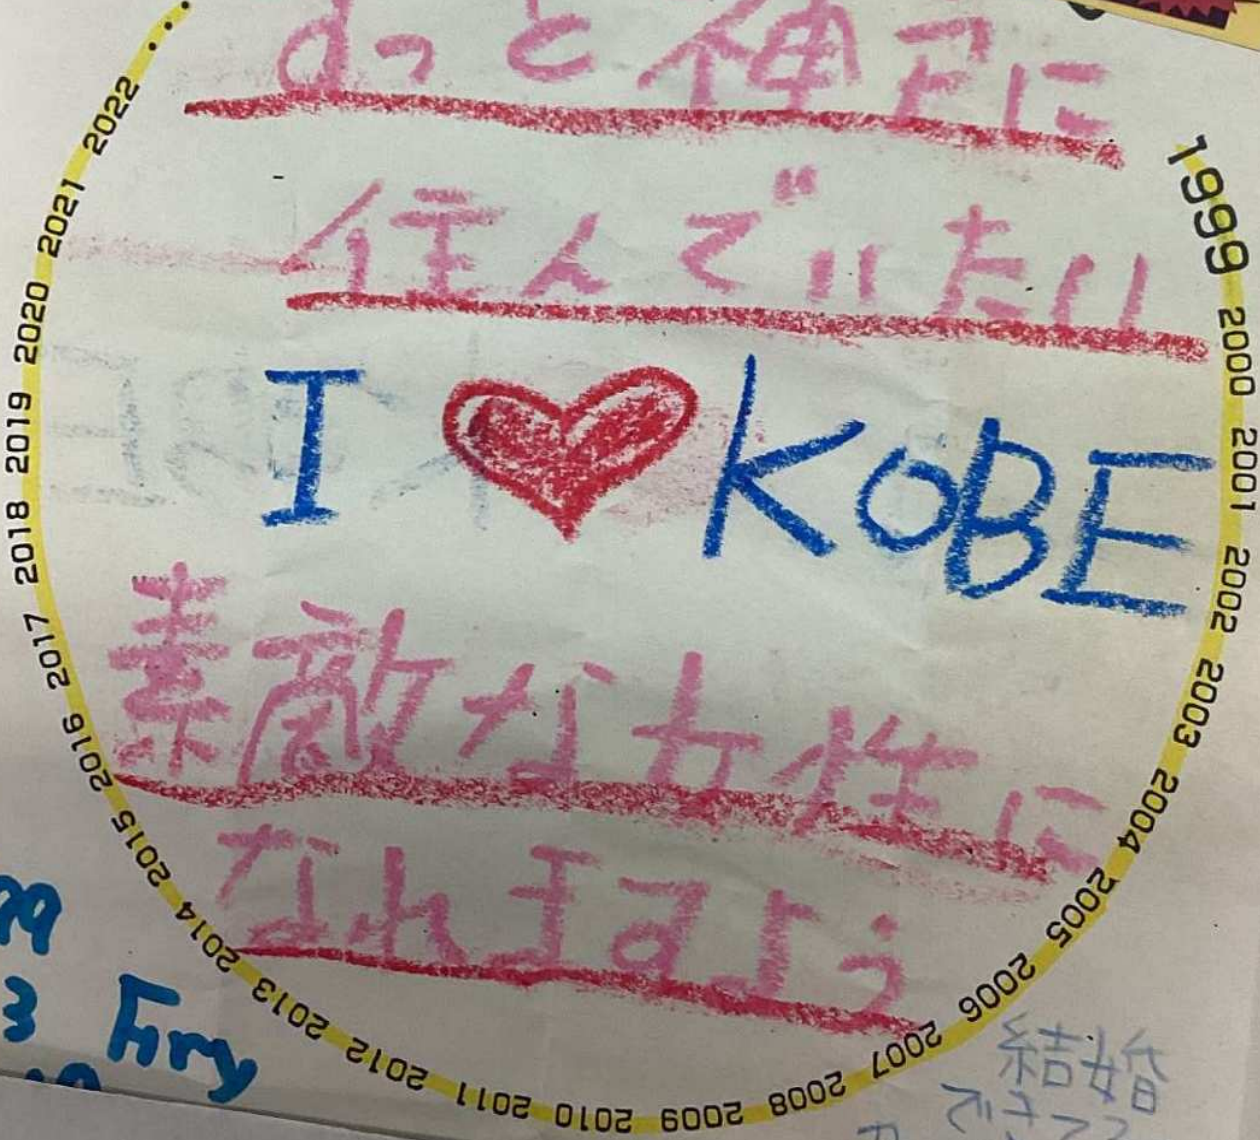 ずっと神戸に
住んでいたい
I ♥ KOBE
素敵な女性に
なれますよう
1999 2000 2001 2002 2003 2004 2005 2006 2007 2008 2009 2010 2011 2012 2013 2014 2015 2016 2017 2018 2019 2020 2021 2022 ...
結婚